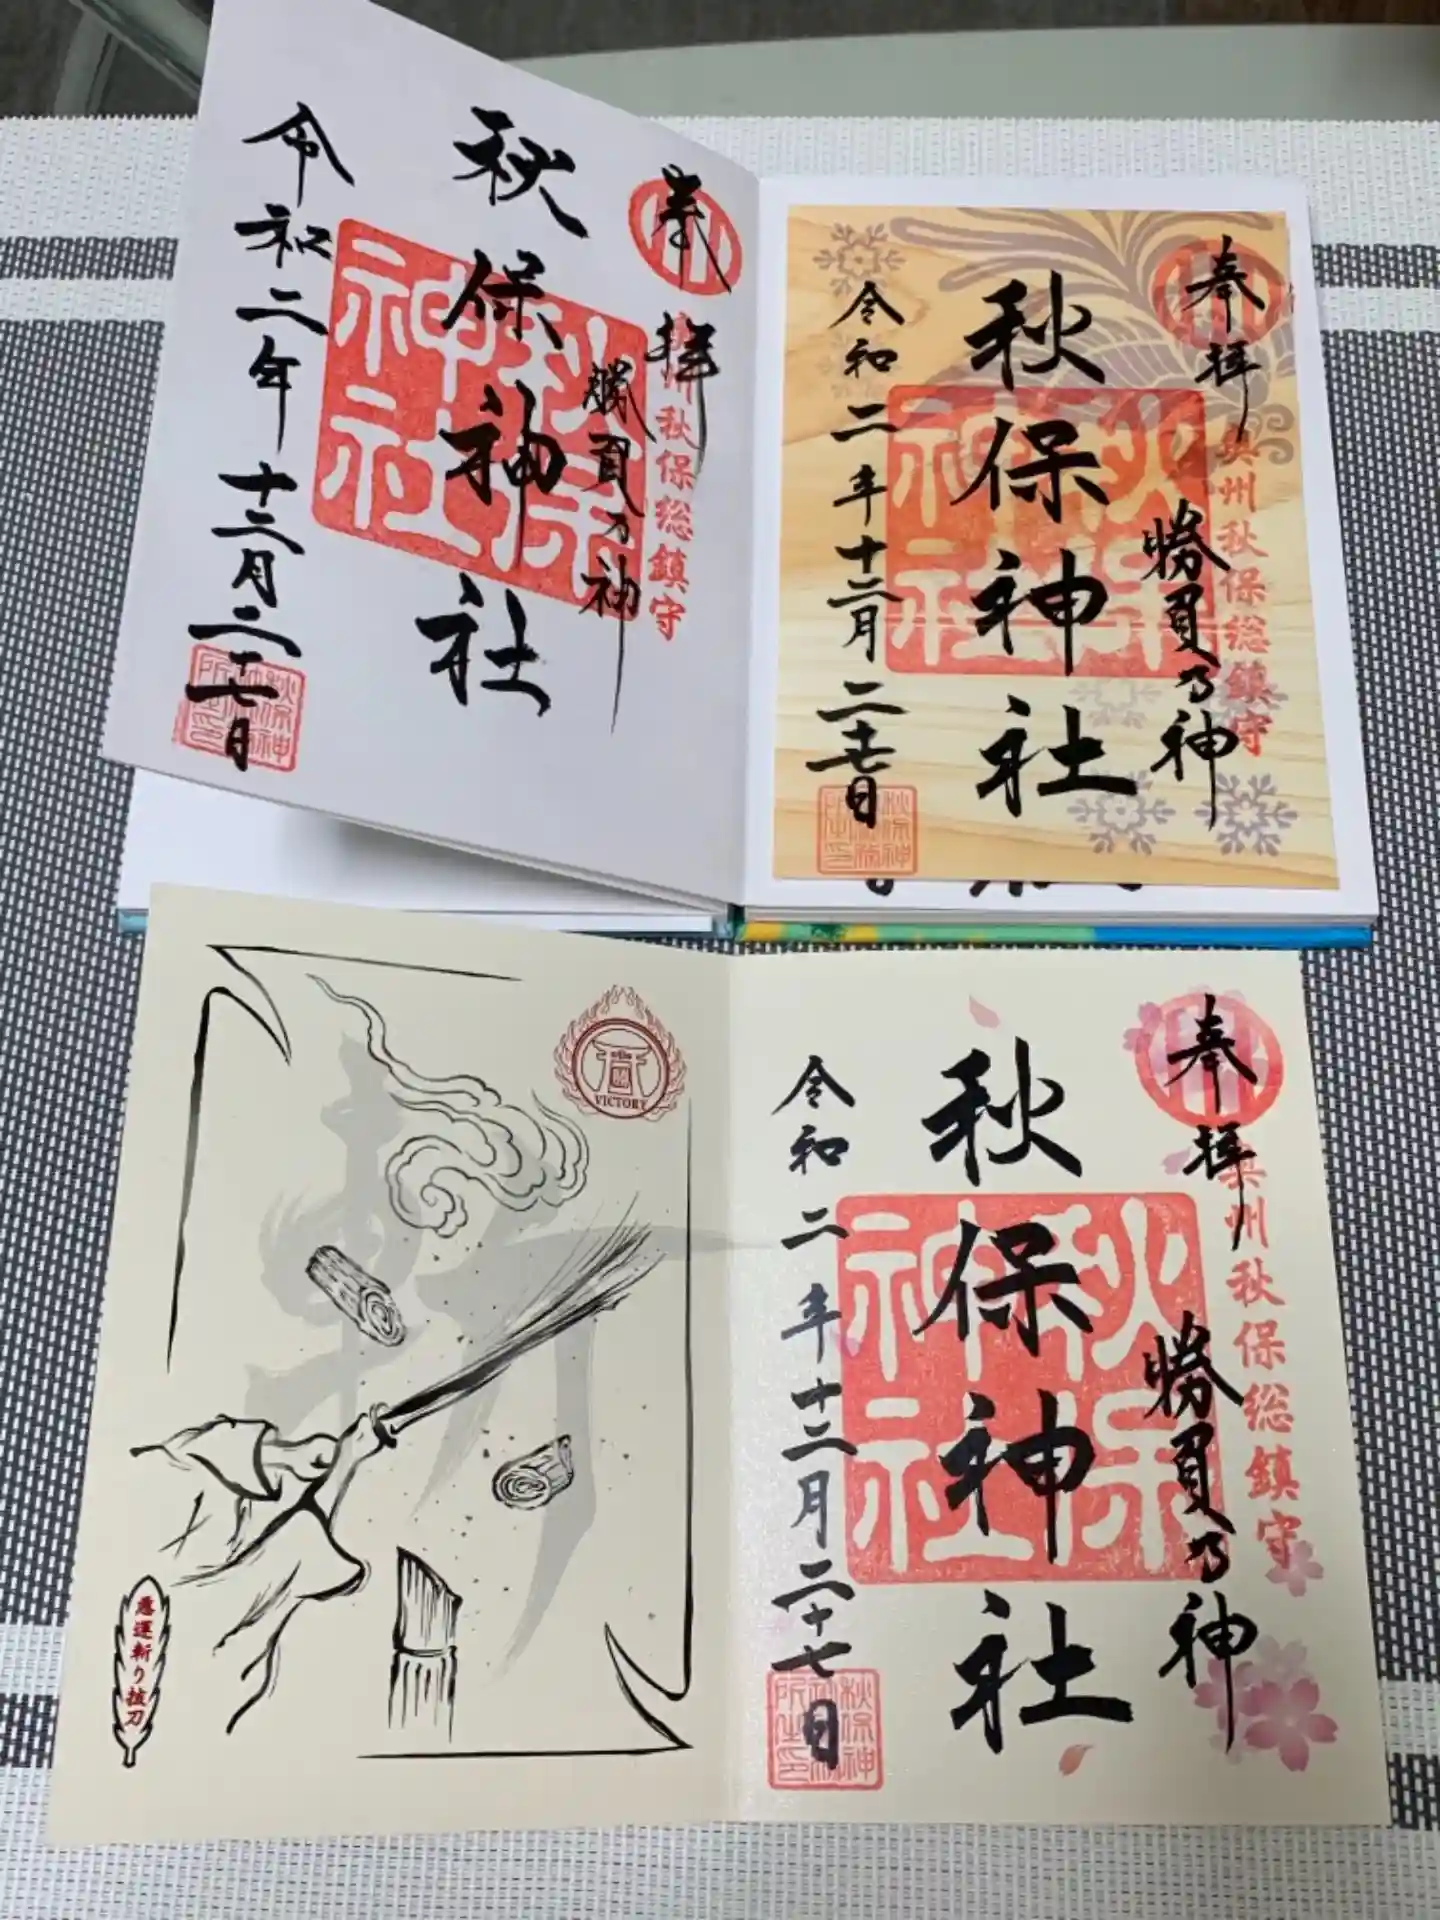 奉拝
奥州秋保総鎮守
勝負乃神
秋保神社
秋保神社
令和二年十二月二十七日
奉拝
奥州秋保総鎮守
勝負乃神
秋保神社
秋保神社
令和二年十二月二十七日
奉拝
奥州秋保総鎮守
勝負乃神
秋保神社
秋保神社
令和二年十二月二十七日
VICTORY
悪運斬り抜刀